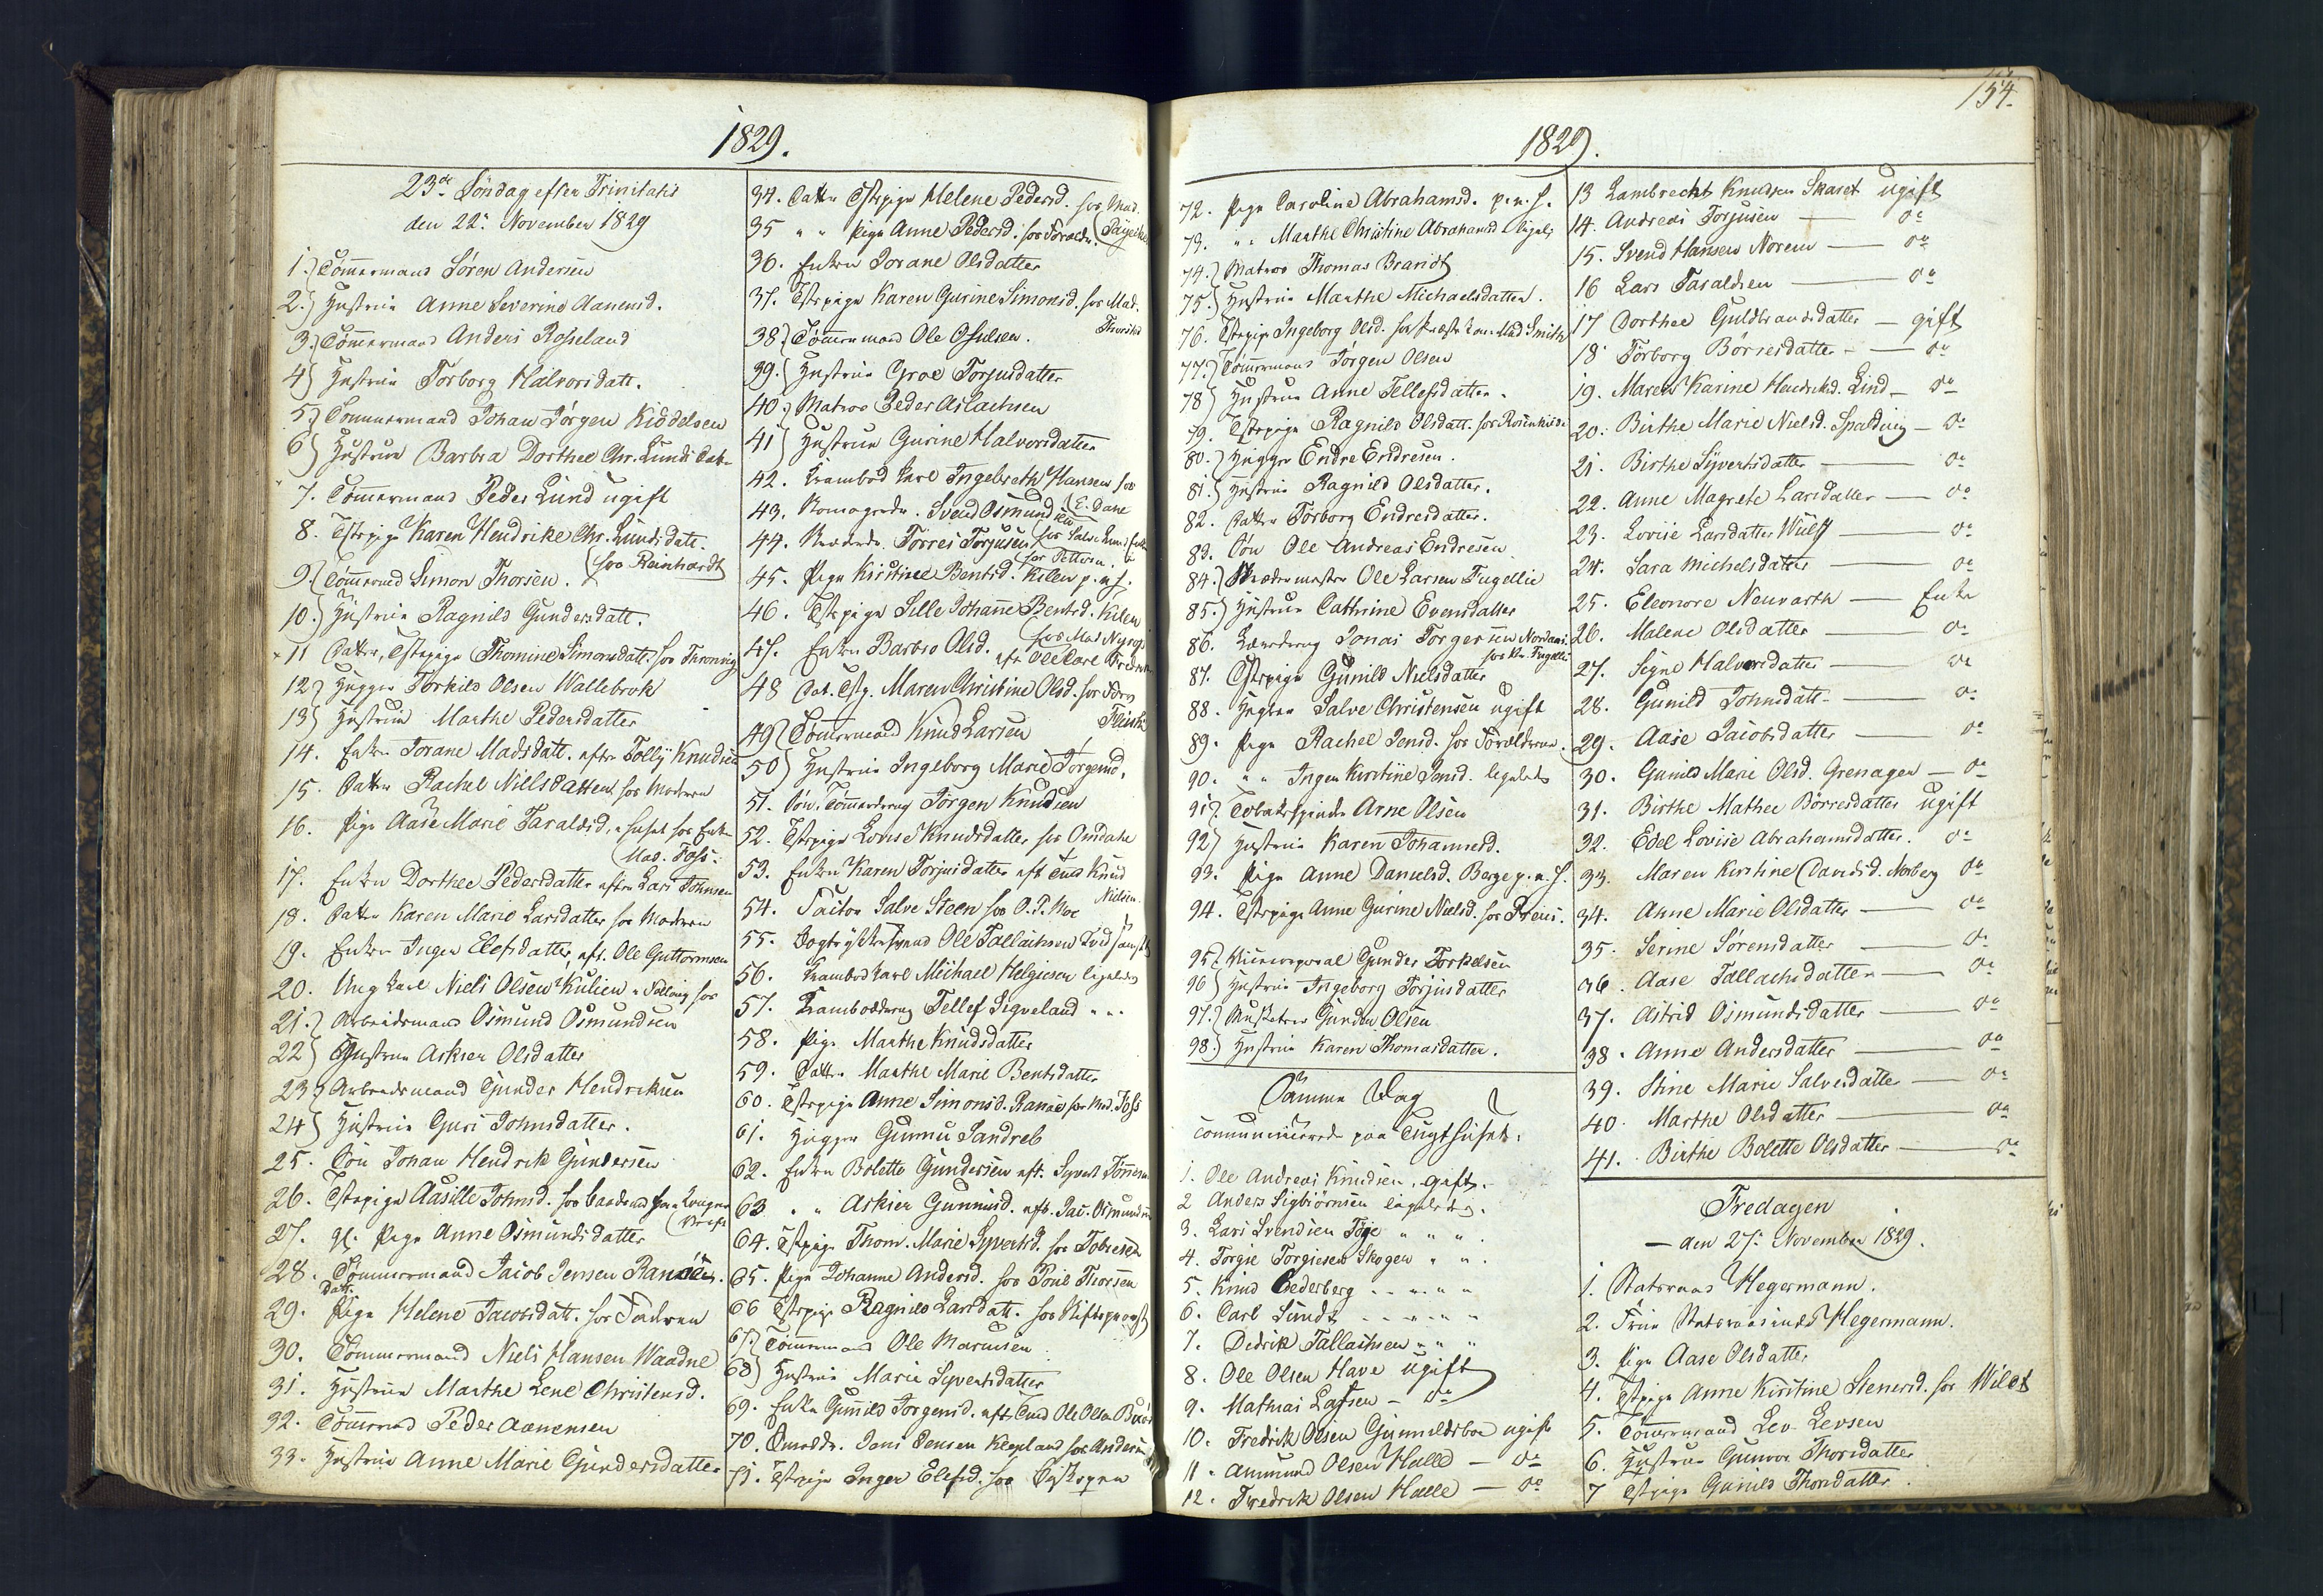 1829.
23de Søndag efter Trinitatis
den 22de November 1829
1. Tømmermand Søren Andersen
2. Hustrue Anne Severine Aanensd.
3. Tømmermand Anders Rosseland
4 Hustrue Torborg Halvorsdatt.
5. Tømmermand Johan Jørgen Kiddelsen
6 Hustrue Barbra Dorthee Chr. Lunds Datt.
7. Tømmermand Peder Lund ugift
8. Tstpige Karen Hendrike Chr. Lundsdatt.
(hos Reinhardt
9. Tømmermd Simon Thorsen.
10. Hustrue Ragnild Gundersdatt.
11 Datter, Tstpige Thomine Simonsdatt. hos Thronnig
12 Hugger Torkild Olsen Wallebrok
13 Hustrue Marthe Pedersdatter
14. Enken Jorane Madsdatt. efter Tolly Knudsen
15. Datter Rachel Nielsdatter hos Moderen
16. Pige Aase Marie Taraldsd. hos Enke
(Mad. Foss.
17. Enken Dorthee Pedersdatter efter Lars Johnsen
18. Datter Karen Marie Larsdatter hos Moderen
19. Enken Inger Elefsdatter, eft. Ole Guttormsen
20. Ung Karl Niels Olsen Kulien
21. Arbeidsmand Osmund Osmundsen
22 Hustrue Askier Olsdatter
23 Arbeidsmand Gunder Hendriksen
24 Hustrue Guri Johnsdatter.
25. Søn Johan Hendrik Gundersen
26. Tstpige Aasille Johnsd. hos
27. gl. Pige Anne Osmundsdatter
28. Tømmermand Jacob Jensen Randöen.
Datt.
29. Pige Helene Jacobsdatt. hos Faderen
30. Tømmermand Niels Hansen Waadne
31. Hustrue Marthe Lene Christensd.
32. Tømmermd Peder Aanensen
33. Hustrue Anne Marie Gundersdatter
34. Datter Tstpige Helene Pedersd. hos Mad.
35 " " Pige Anne Pedersd. hos Forældr.
36. Enken Jorane Olsdatter
37. Tstpige Karen Gurine Simonsd. hos Mad.
38. Tømmermand Ole Ofsulsen.
39. Hustrue Groe Torjusdatter
40. Matros Peder Aslachsen
41 Hustrue Gurine Halvorsdatter
42. Krambodkarl Ingebreth Hansen hos
(E. Dane
43. Svend Osmundsen
44. Torres Torjusen
hos Pettersen.
45. Pige Kirstine Bentsd. Kilen p. e. h.
46. Tstpige Sille Johanne Bentsd. Kilen
(hos Mad Nyrop
47. Enken Barbro Olsd.
48 Dat. Tstp. Maren Christine Olsd. hos
49 Tømmermand Knud Larsen
50 Hustrue Ingeborg Marie Jørgensd.
51. Søn, Tømmerdreng Jørgen Knudsen
52. Tstpige Lovise Knudsdatter hos Omdahl
53. Enken Karen Torjusdatter eft. Tmd Knud
Nielsen.
54. Factor Salve Steen hos O. P. Moe
55. Bogtrykkersvend Ole Tallachsen
56. Krambodkarl Michael Helgiesen ligeledes
57. Kramboddreng Tellef Sigveland " "
58. Pige Marthe Knudsdatter
59. Datter Marthe Marie Bentsdatter
60. Tstpige Anne Simonsd. Ranöe hos Mad. Foss
61. Hugger Gunnu Sandreb
62. Enken Bolette Gundersen eft. Syvert Tønnesen
63 " " Askier Gunnusd. eft. Jac. Osmundsen
64. Tstpige Thom. Marie Syvertsd. hos Tobiesen
65. Pige Johanne Andersd. hos Poul Thorsen
66 Tstpige Ragnild Larsdatt. hos Stiftsprovst
67. Tømmermand Ole Marcusen
68 Hustrue Marie Syvertsdatter
69. Enken Gunnild Jørgensd. eft. Tmd Ole Olsen
70. Jens Jensen Kleppland hos Andersen
71. Tstpige Inger Elefsd. hos Biskopen
154.
1829.
72. Pige Caroline Abrahamsd. p. e. h.
73. " " Marthe Christine Abrahamsd ligel.
74. Matros Thomas Brandt
75. Hustrue Marthe Michaelsdatter.
76. Tstpige Ingeborg Olsd. Mad Smith
77. Tømmermand Jørgen Olsen
78 Hustrue Anne Tellefsdatter.
79. Tstpige Ragnild Olsdatt. hos Rosenkilde
80. Hugger Endre Endresen.
81. Hustrue Ragnild Olsdatter.
82. Datter Torborg Endresdatter.
83. Søn Ole Andreas Endresen
84. Ole Larsen Fugellie
85. Hustrue Cathrine Evensdatter
86. Læredreng Jonas Torgersen
hos Fugellie
87. Tstpige Gunild Nielsdatter
88. Salve Christensen ugift
89. Pige Rachel Jensd. hos Forældrene
90. " " Inger Kirstine Jensd. ligeledes
91. Tobakspinder Arne Olsen
92 Hustrue Karen Johannesd.
93. Pige Anne Danielsd. Berge p. e. h.
94. Tstpige Anne Gurine Nielsd. hos Preus.
95. Gunder Torkelsen
96 Hustrue Ingeborg Torjusdatter
97. Musketeer Gunder Olsen
98. Hustrue Karen Thomasdatter.
Samme Dag
communicerede paa Tugthuset.
1. Ole Andreas Knudsen, gift.
2 Anders Sigbiörnsen ligeledes.
3. Lars Svendsen Töge " " "
4. Torgie Torgiesen Skogen " "
5. Knud Cederberg " " " "
6. Carl Lunds " " " "
7. Didrik Tallachsen " " "
8. Ole Olsen Have ugift
9. Mathias Larsen — do
10. Fredrik Olsen Gunnildsboe ugift
11. Ammund Olsen Halle — do
12. Fredrik Olsen Halle — do
13 Lambrecht Knudsen Skaret ugift
14. Andreas Torjusen — do
15. Svend Hansen Noreen — do
16 Lars Taraldsen — do
17 Dorthee Guldbrandsdatter — gift
18 Törborg Börresdatter — do
19. Maren Karine Hendriksd. Lind — do
20. Birthe Marie Nielsd. Spalding — do
21. Birthe Syvertsdatter — do
22. Anne Magrete Larsdatter — do
23. Lovise Larsdatter Wulff — do
24. Sara Michelsdatter — do
25. Eleonore Neuvarth — Enke
26. Malene Olsdatter — do
27. Signe Halvorsdatter — do
28. Gunild Johnsdatt. — do
29. Aase Jacobsdatter — do
30. Gunild Marie Olsd. Grenager — do
31. Birthe Mathee Börresdatter ugift
32. Edel Lovise Abrahamsdatter. do
33. Maren Kirstine Davidsd. Norberg do
34. Anne Marie Olsdatter — do
35. Serine Sörensdatter — do
36. Aase Tallachsdatter — do
37. Astrid Osmundsdatter — do
38. Anne Andersdatter — do
39. Stine Marie Salvesdatter — do
40. Marthe Olsdatter — do
41. Birthe Bolette Olsdatter — do
Fredagen
— den 27de November 1829.
1. Statsraad Hegermann.
2. Frue Statsraadinde Hegermann.
3. Pige Aase Olsdatter
4. Tstpige Anne Kirstine Stenersd. hos Wild
5. Tømmermand Lev. Levsen
6. Hustrue Gunvor Thorsdatter
7 Tstpige Gunild Thorsdatter.